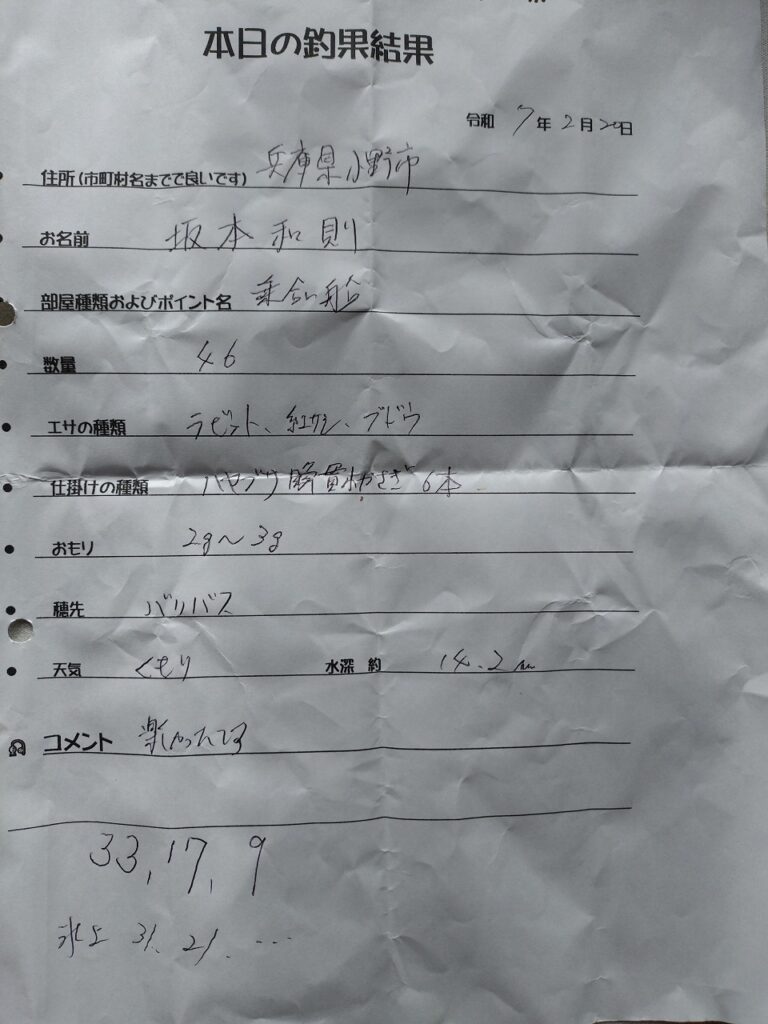 本日の釣果結果
令和 7年2月20日
住所(市町村名までで良いです) 兵庫県小野市
お名前 坂本和則
部屋種類およびポイント名 乗合い船
数量 46
エサの種類 ラビット、紅サシ、ブドウ
仕掛けの種類 バセブサ 瞬貫わかさぎ 6本
おもり 2g〜3g
穂先 バリバス
天気 くもり 水深 約 14.2m
コメント 楽しかったです
33,17,9
氷上 31,21,…